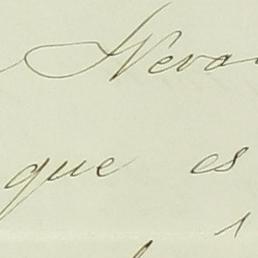 Neva
que es